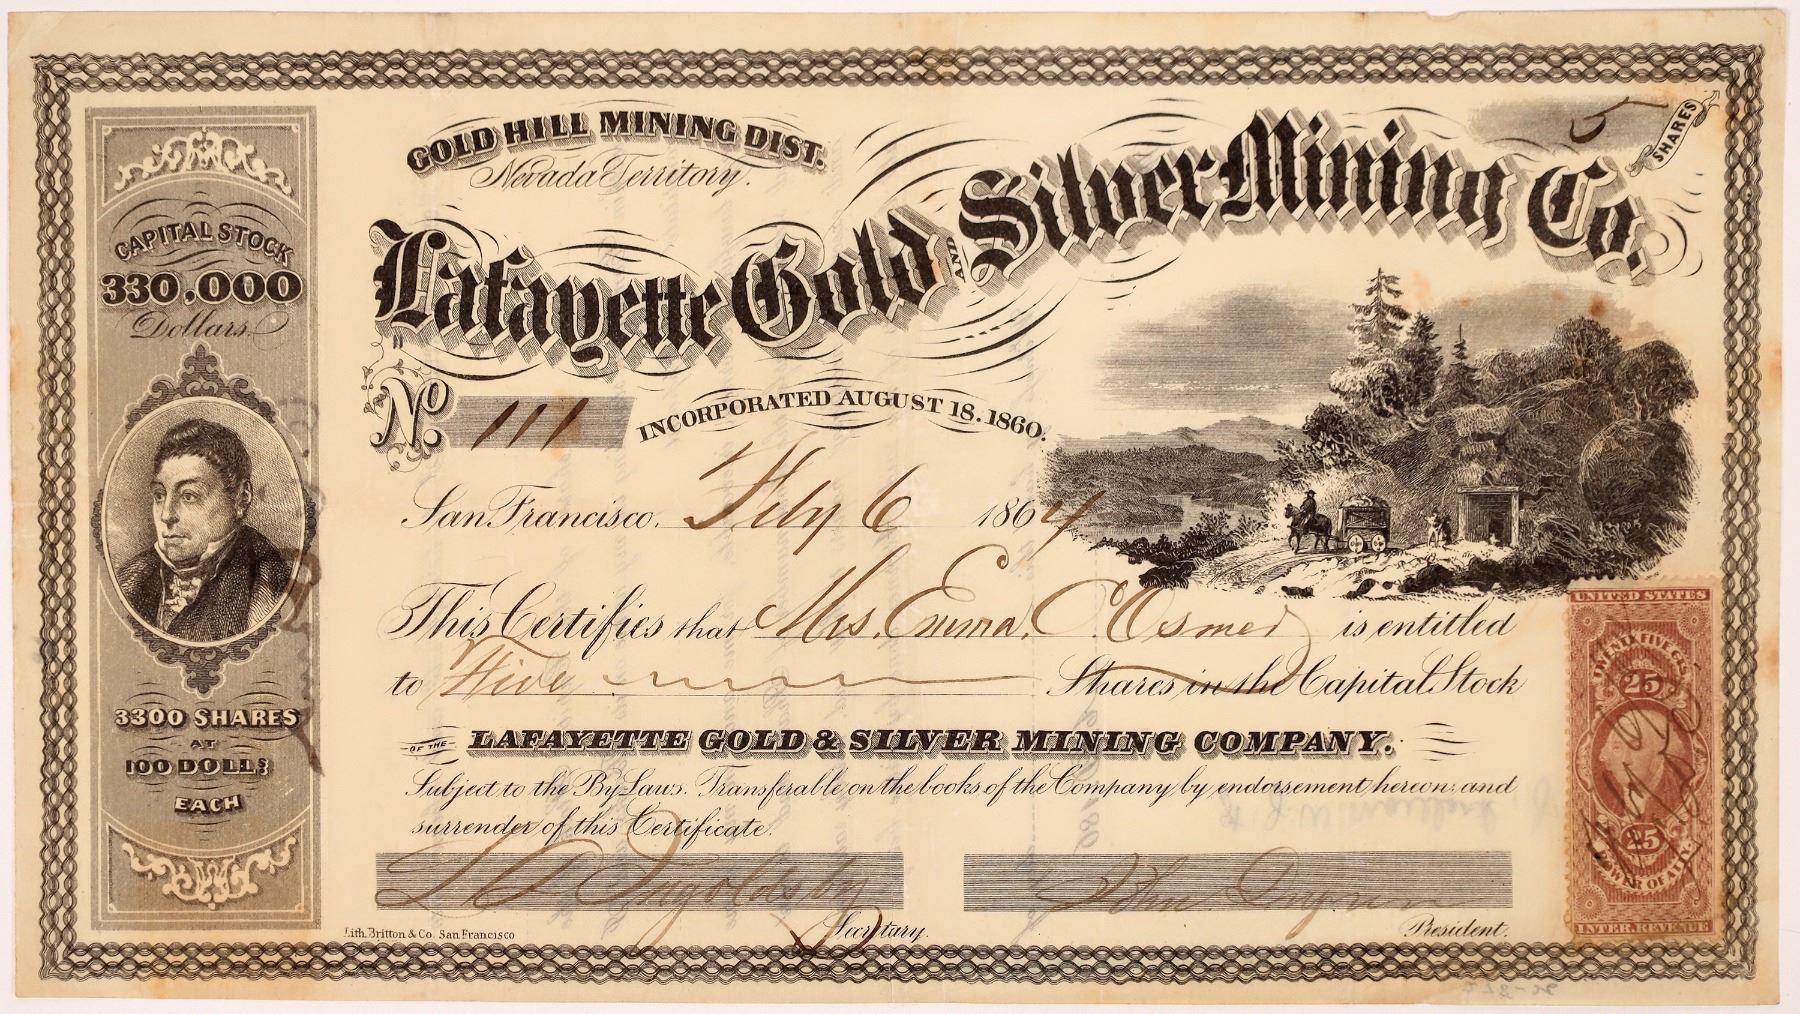 GOLD HILL MINING DIST.
Nevada Territory.
5
SHARES
Lafayette Gold AND Silver Mining Co.
CAPITAL STOCK
330,000
Dollars.
3300 SHARES
AT
100 DOLLS
EACH
No. 111
INCORPORATED AUGUST 18. 1860.
San Francisco, Feby 6 1864
This Certifies that Mrs. Emma. C. Osmer is entitled
to Five Shares in the Capital Stock
OF THE LAFAYETTE GOLD & SILVER MINING COMPANY.
Subject to the By Laws. Transferable on the books of the Company by endorsement hereon and
surrender of this Certificate.
Ingoldsby
John
Secretary.
President.
Lith. Britton & Co. San Francisco
UNITED STATES
TWENTY FIVE CTS.
25
25
POWER OF ATT'Y.
INTER. REVENUE